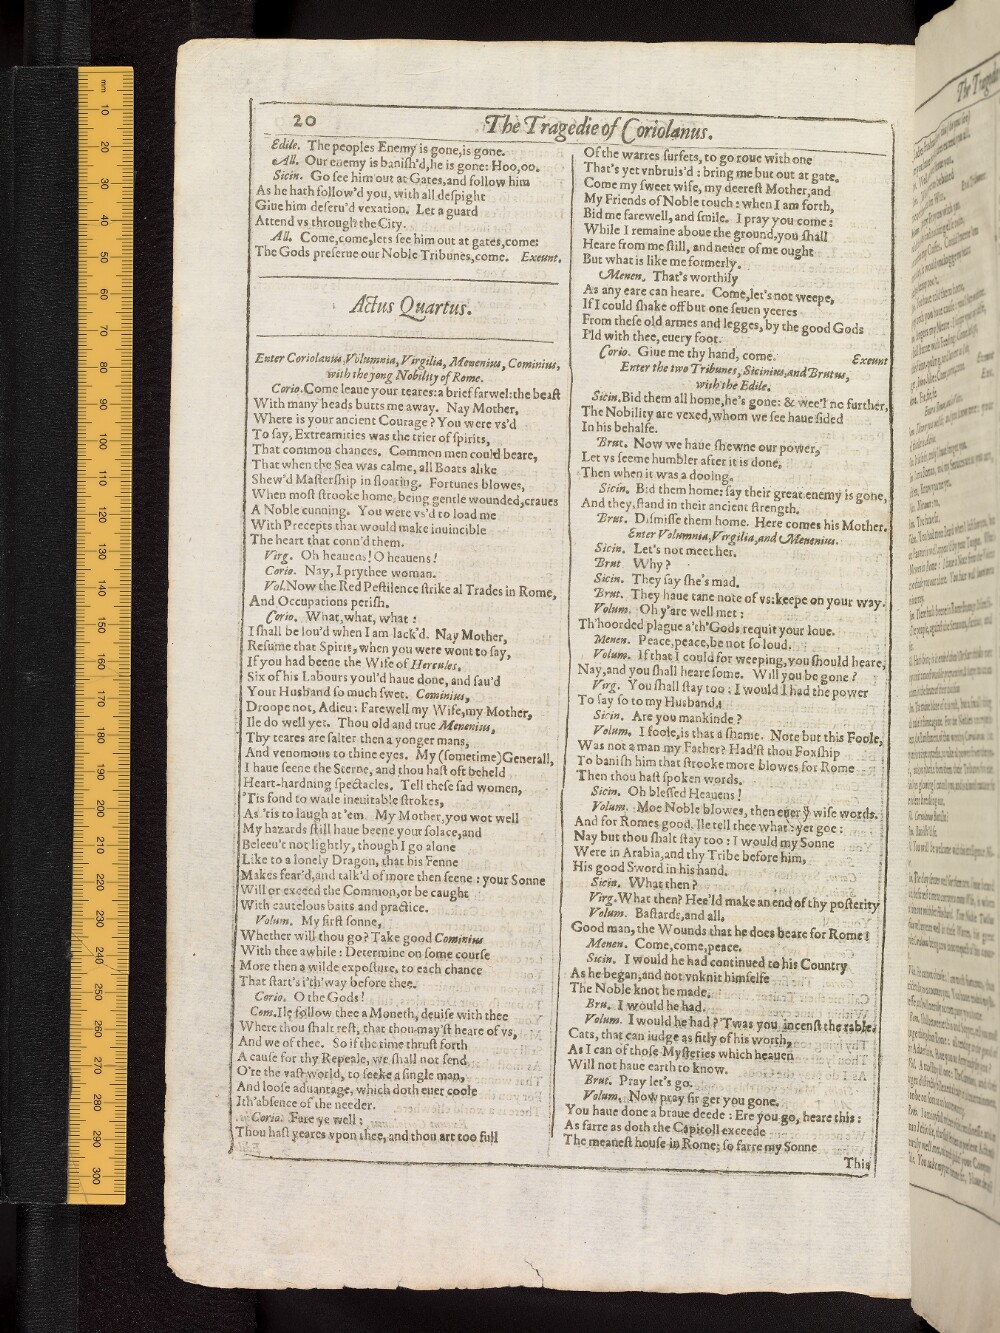 20
The Tragedie of Coriolanus.
Edile. The peoples Enemy is gone, is gone.
All. Our enemy is banish'd, he is gone: Hoo, oo.
Sicin. Go see him out at Gates, and follow him
As he hath follow'd you, with all despight
Giue him deseru'd vexation. Let a guard
Attend vs through the City.
All. Come, come, lets see him out at gates, come:
The Gods preserue our Noble Tribunes, come. Exeunt.
Actus Quartus.
Enter Coriolanus, Volumnia, Virgilia, Menenius, Cominius,
with the yong Nobility of Rome.
Corio. Come leaue your teares: a brief farwel: the beast
With many heads butts me away. Nay Mother,
Where is your ancient Courage? You were vs'd
To say, Extreamities was the trier of spirits,
That common chances. Common men could beare,
That when the Sea was calme, all Boats alike
Shew'd Mastership in floating. Fortunes blowes,
When most strooke home, being gentle wounded, craues
A Noble cunning. You were vs'd to load me
With Precepts that would make inuincible
The heart that conn'd them.
Virg. Oh heauens! O heauens!
Corio. Nay, I prythee woman.
Vol. Now the Red Pestilence strike al Trades in Rome,
And Occupations perish.
Corio. What, what, what:
I shall be lou'd when I am lack'd. Nay Mother,
Resume that Spirit, when you were wont to say,
If you had beene the Wife of Hercules,
Six of his Labours youl'd haue done, and sau'd
Your Husband so much swet. Cominius,
Droope not, Adieu: Farewell my Wife, my Mother,
Ile do well yet. Thou old and true Menenius,
Thy teares are salter then a yonger mans,
And venomous to thine eyes. My (sometime) Generall,
I haue seene the Sterne, and thou hast oft beheld
Heart-hardning spectacles. Tell these sad women,
'Tis fond to waile ineuitable strokes,
As 'tis to laugh at 'em. My Mother, you wot well
My hazards still haue beene your solace, and
Beleeu't not lightly, though I go alone
Like to a lonely Dragon, that his Fenne
Makes fear'd, and talk'd of more then seene: your Sonne
Will or exceed the Common, or be caught
With cautelous baits and practice.
Volum. My first sonne,
Whether will thou go? Take good Cominius
With thee awhile: Determine on some course
More then a wilde exposture, to each chance
That start's i'th'way before thee.
Corio. O the Gods!
Com. Ile follow thee a Moneth, deuise with thee
Where thou shalt rest, that thou may'st heare of vs,
And we of thee. So if the time thrust forth
A cause for thy Repeale, we shall not send
O're the vast world, to seeke a single man,
And loose aduantage, which doth euer coole
Ith'absence of the needer.
Corio. Fare ye well:
Thou hast yeares vpon thee, and thou art too full
Of the warres surfets, to go roue with one
That's yet vnbruis'd: bring me but out at gate.
Come my sweet wife, my deerest Mother, and
My Friends of Noble touch: when I am forth,
Bid me farewell, and smile. I pray you come:
While I remaine aboue the ground, you shall
Heare from me still, and neuer of me ought
But what is like me formerly.
Menen. That's worthily
As any eare can heare. Come, let's not weepe,
If I could shake off but one seuen yeeres
From these old armes and legges, by the good Gods
I'ld with thee, euery foot.
Corio. Giue me thy hand, come. Exeunt
Enter the two Tribunes, Sicinius, and Brutus,
with the Edile.
Sicin. Bid them all home, he's gone: & wee'l no further,
The Nobility are vexed, whom we see haue sided
In his behalfe.
Brut. Now we haue shewne our power,
Let vs seeme humbler after it is done,
Then when it was a dooing.
Sicin. Bid them home: say their great enemy is gone,
And they, stand in their ancient strength.
Brut. Dismisse them home. Here comes his Mother.
Enter Volumnia, Virgilia, and Menenius.
Sicin. Let's not meet her.
Brut Why?
Sicin. They say she's mad.
Brut. They haue tane note of vs: keepe on your way.
Volum. Oh y'are well met:
Th'hoorded plague a'th'Gods requit your loue.
Menen. Peace, peace, be not so loud.
Volum. If that I could for weeping, you should heare,
Nay, and you shall heare some. Will you be gone?
Virg. You shall stay too: I would I had the power
To say so to my Husband.
Sicin. Are you mankinde?
Volum. I foole, is that a shame. Note but this Foole,
Was not a man my Father? Had'st thou Foxship
To banish him that strooke more blowes for Rome
Then thou hast spoken words.
Sicin. Oh blessed Heauens!
Volum. Moe Noble blowes, then euer ÿ wise words.
And for Romes good, Ile tell thee what: yet goe:
Nay but thou shalt stay too: I would my Sonne
Were in Arabia, and thy Tribe before him,
His good Sword in his hand.
Sicin. What then?
Virg. What then? Hee'ld make an end of thy posterity
Volum. Bastards, and all.
Good man, the Wounds that he does beare for Rome!
Menen. Come, come, peace.
Sicin. I would he had continued to his Country
As he began, and not vnknit himselfe
The Noble knot he made.
Bru. I would he had.
Volum. I would he had? 'Twas you incenst the rable.
Cats, that can iudge as fitly of his worth,
As I can of those Mysteries which heauen
Will not haue earth to know.
Brut. Pray let's go.
Volum. Now pray sir get you gone.
You haue done a braue deede: Ere you go, heare this:
As farre as doth the Capitoll exceede
The meanest house in Rome; so farre my Sonne
This